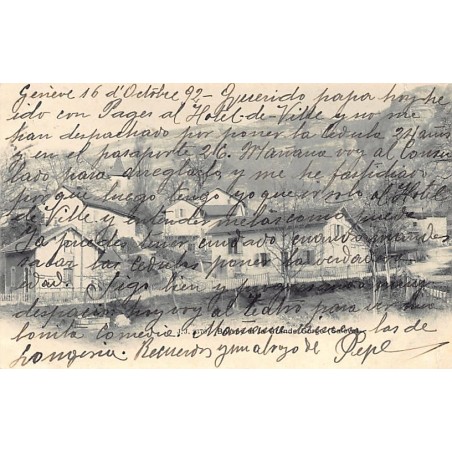 Genève 16 d'Octobre 92 - Querido papa hoy he
ido con Pages al Hotel-de-Ville y no me
han despachado por poner la cedula 24 años
y en el pasaporte 26. Mañana voy al Consu-
lado para arreglarlo y me he fastidiado
porque luego tengo yo que ir solo al Hotel
de Ville y entendermelas como pueda
Ya puedes tener cuidado cuando mandes
sacar las cedulas poner la verdadera
edad. Sigo bien y estoy muy
despacio hoy voy al teatro para ver una
bonita comedia
Longeria. Recuerdos y un abrazo de Pepe